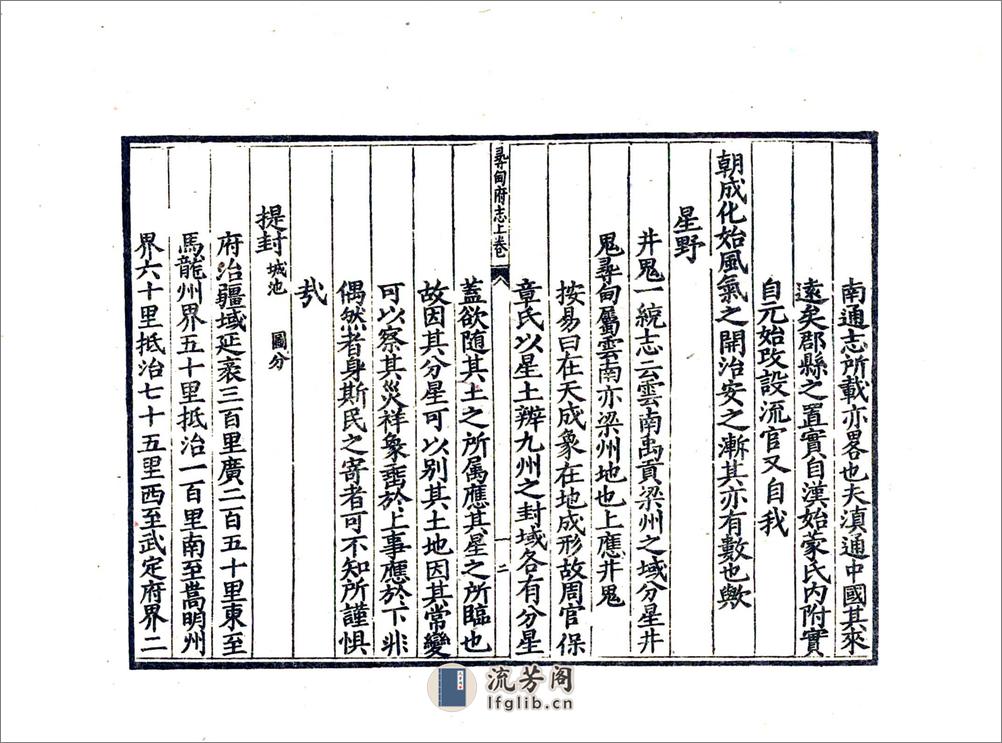 南通志所載亦畧也夫滇通中國其來
遠矣郡縣之置實自漢始蒙氏內附實
自元始攺設流官又自我
朝成化始風氣之開治安之漸其亦有數也歟
星野
井鬼一統志云雲南禹貢梁州之域分星井
鬼尋甸屬雲南亦梁州地也上應井鬼
按易曰在天成象在地成形故周官保
章氏以星土辨九州之封域各有分星
尋甸府志上卷
二
蓋欲随其土之所属應其星之所臨也
故因其分星可以别其土地因其常變
可以察其災祥象垂於上事應於下非
偶然者身斯民之寄者可不知所謹惧
㢤
提封 城池 圖分
府治疆域延袤三百里廣二百五十里東至
馬龍州界五十里抵治一百里南至嵩明州
界六十里抵治七十五里西至武定府界二
流芳阁
lfglib.cn